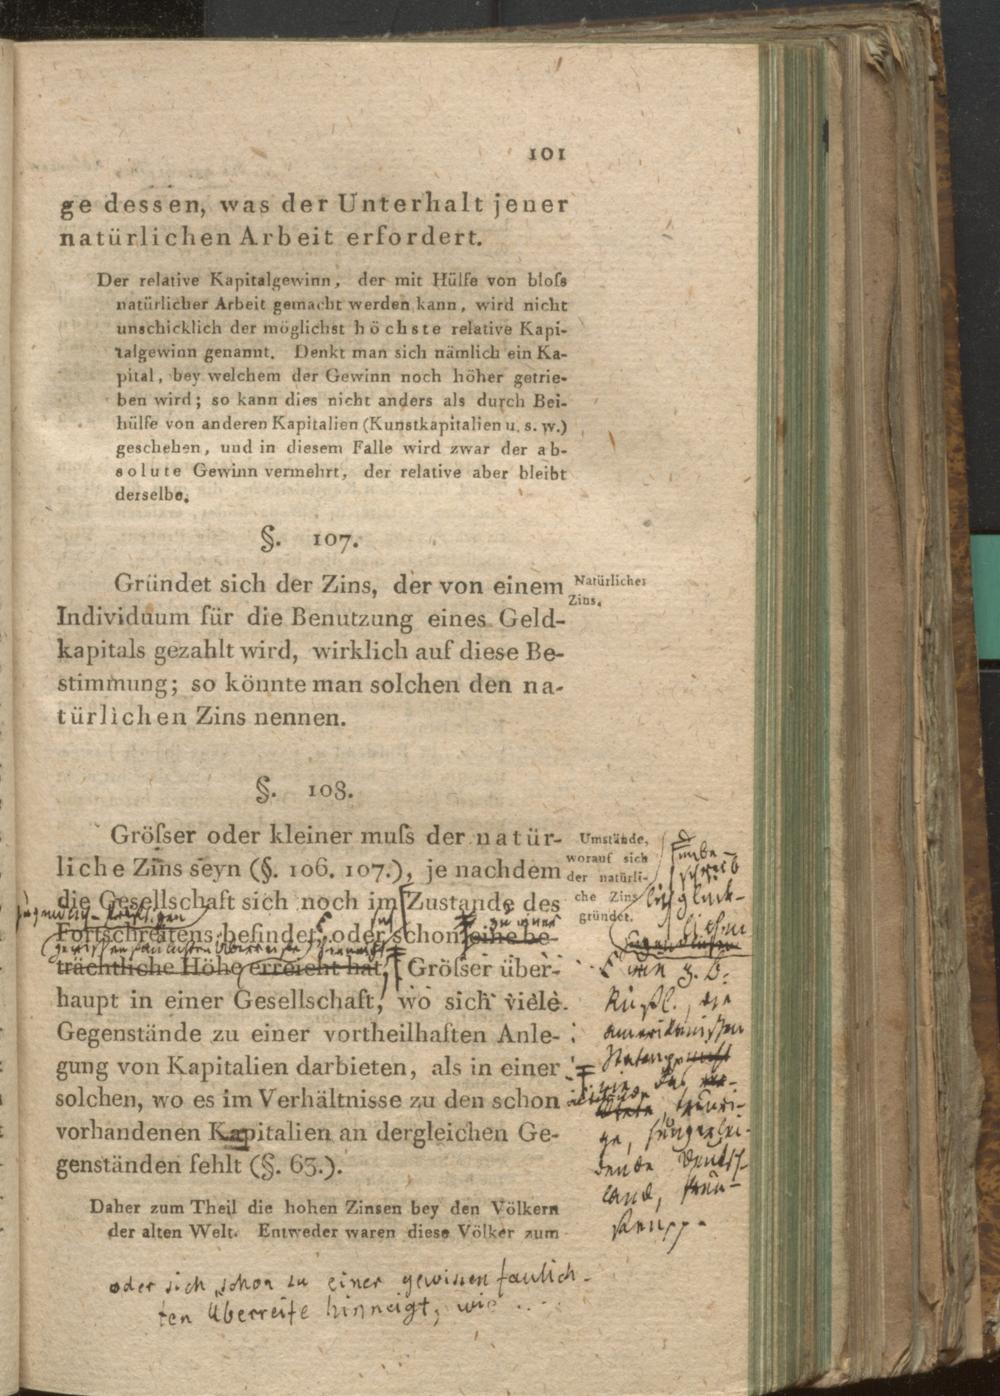 101
ge dessen, was der Unterhalt jener
natürlichen Arbeit erfordert.
Der relative Kapitalgewinn, der mit Hülfe von bloſs
natürlicher Arbeit gemacht werden kann, wird nicht
unschicklich der möglichst höchste relative Kapi-
talgewinn genannt. Denkt man sich nämlich ein Ka-
pital, bey welchem der Gewinn noch höher getrie-
ben wird; so kann dies nicht anders als durch Bei-
hülfe von anderen Kapitalien (Kunstkapitalien u. s. w.)
geschehen, und in diesem Falle wird zwar der ab-
solute Gewinn vermehrt, der relative aber bleibt
derselbe.
§. 107.
Gründet sich der Zins, der von einem
Individuum für die Benutzung eines Geld-
kapitals gezahlt wird, wirklich auf diese Be-
stimmung; so könnte man solchen den na-
türlichen Zins nennen.
Natürlicher
Zins.
§. 108.
Gröſser oder kleiner muſs der natür-
liche Zins seyn (§. 106. 107.), je nachdem
die Gesellschaft sich noch im Zustande des
Fortschreitens befindet, oder schon eine be-
trächtliche Höhe erreicht hat. Gröſser über-
haupt in einer Gesellschaft, wo sich viele
Gegenstände zu einer vortheilhaften Anle-
gung von Kapitalien darbieten, als in einer
solchen, wo es im Verhältnisse zu den schon
vorhandenen Kapitalien an dergleichen Ge-
genständen fehlt (§. 63.).
Umstände,
worauf sich
der natürli-
che Zins
gründet.
unbe-
schreib
lich glück-
lichen
z. B.
Rußl., die
amerikanischen
Staaten
trauri-
ge, hungerlei-
dende Deutsch-
land,
Daher zum Theil die hohen Zinsen bey den Völkern
der alten Welt. Entweder waren diese Völker zum
oder sich schon zu einer gewissen faulich-
ten Überreife hinneigt, wie ...